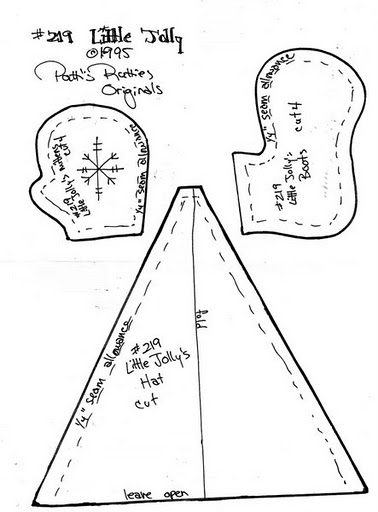 #219 Little Jolly
©1995
Patti's Ratties
Originals
#219
Little Jolly's
Mittens
cut 4
1/4" seam allowance
#219
Little Jolly's
Boots
cut 4
1/4" seam allowance
#219
Little Jolly's
Hat
cut
1/4" seam allowance
fold
leave open